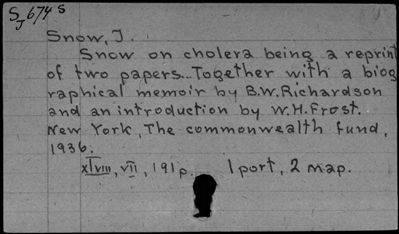 SJ674S
Snow, J.
Snow on cholera being a reprint
of two papers... Together with a biog
raphical memoir by B.W. Richardson
and an introduction by W.H. Frost.
New York, The commonwealth fund,
1936.
xlviii, vii, 191 p. 1 port, 2 map.